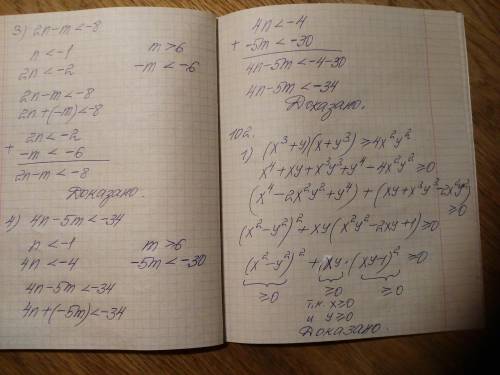 3) 2n-m<-8
n<-1 m>6
2n<-2 -m<-6
2n-m<-8
2n+(-m)<-8
2n<-2
+
-m<-6
2n-m<-8
Доказано.
4) 4n-5m<-34
n<-1 m>6
4n<-4 -5m<-30
4n-5m<-34
4n+(-5m)<-34
4n<-4
+
-5m<-30
4n-5m<-4-30
4n-5m<-34
Доказано.
102.
1) (x³+y)(x+y³)≥4x²y²
x⁴+xy+x³y³+y⁴-4x²y²≥0
(x⁴-2x²y²+y⁴)+(xy+x³y³-2x²y²)
≥0
(x²-y²)²+xy(x²y²-2xy+1)≥0
(x²-y²)²+xy·(xy-1)²≥0
≥0 ≥0 ≥0
т.к. x≥0
и y≥0
Доказано.